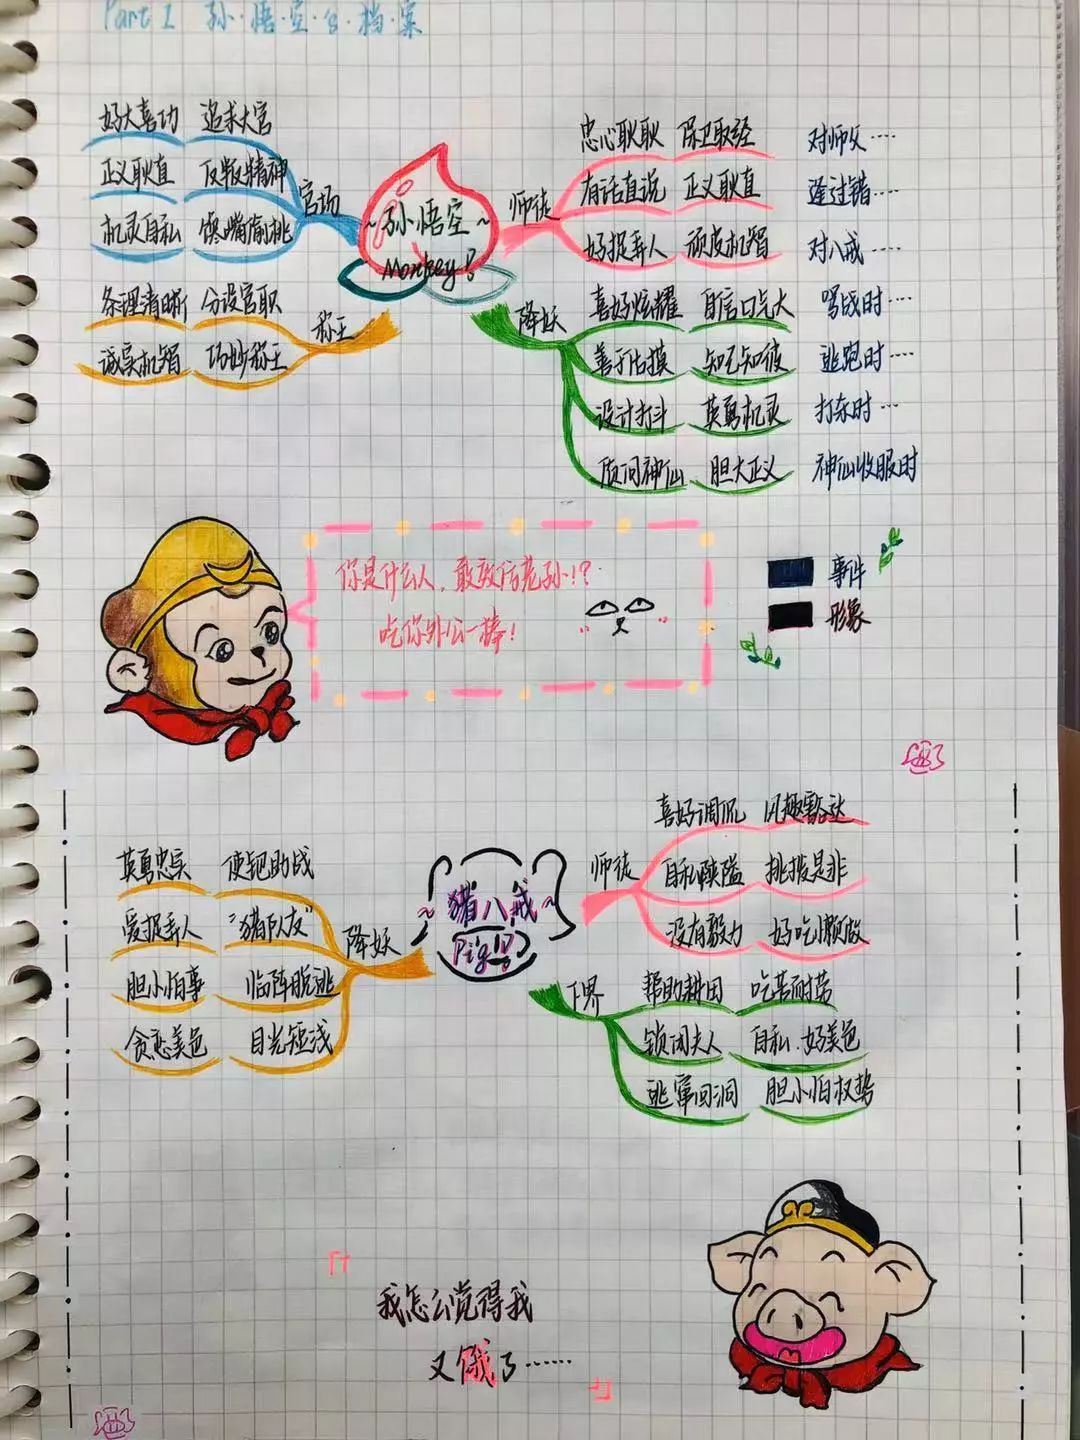 Part 1 孙·悟·空·の·档·案
好大喜功 追求大官
正义耿直 反叛精神
机灵自私 馋嘴偷桃
官场
条理清晰 分设官职
诚实机智 巧妙称王
称王
~孙悟空~
Monkey!
师徒
忠心耿耿 保卫取经 对师父……
有话直说 正义耿直 逢过错……
好捉弄人 顽皮机智 对八戒……
降妖
喜好炫耀 自信口气大 骂战时……
善于估摸 知己知彼 逃跑时……
设计打斗 英勇机灵 打杀时…
质问神仙 胆大正义 神仙收服时
你是什么人,敢欺侮老孙!?
吃你外公一棒!
事件
形象
英勇忠实 使钯助战
爱捉弄人 “猪队友”
胆小怕事 临阵脱逃
贪恋美色 目光短浅
降妖
~猪八戒~
Pig!
师徒
喜好调侃 风趣豁达
自私狭隘 挑拨是非
没有毅力 好吃懒做
下界
帮助耕田 吃苦耐劳
锁闭夫人 自私、好美色
逃窜回洞 胆小怕权势
「我怎么觉得我
又饿了……」